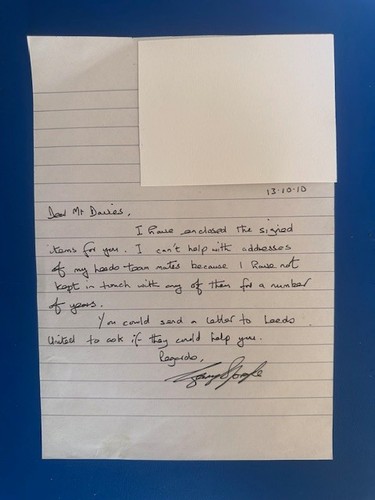 13.10.10
Dear Mr Davies,
I have enclosed the signed
items for you. I can't help with addresses
of my Leeds team mates because I have not
kept in touch with any of them for a number
of years.
You could send a letter to Leeds
United to ask if they could help you.
Regards,